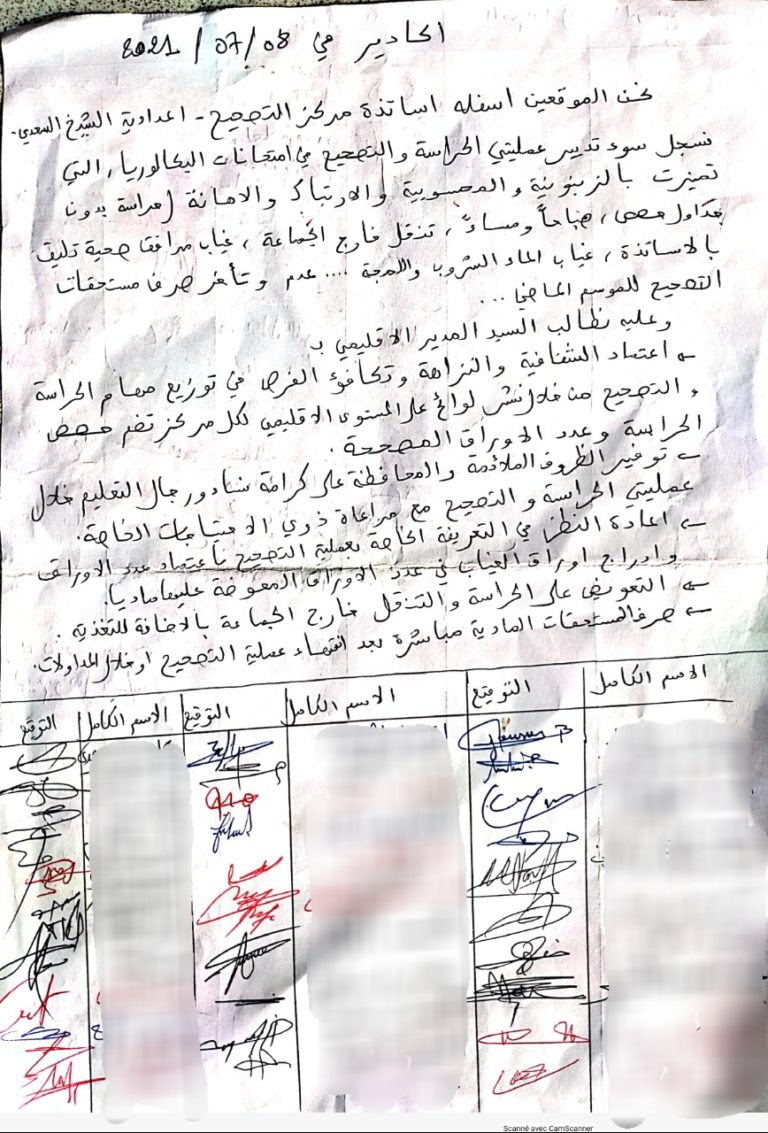 اكادير في 08 / 07 / 2021
نحن الموقعين اسفله اساتذة مركز التصحيح - اعدادية الشيخ السعدي -
نسجل سوء تدبير عمليتي الحراسة والتصحيح في امتحانات البكالوريا, التي
تميزت بالزبونية و المحسوبية والارتباك والاهانة (حراسة بدون
جداول حصص, صباحاً ومساءً, تنقل خارج الجماعة, غياب مرافق صحية تليق
بالاساتذة, غياب الماء الشروب واللمجة .... عدم و تأخر صرف مستحقات
التصحيح للموسم الماضي ...
وعليه نطالب السيد المدير الاقليمي ب
اعتماد الشفافية والنزاهة وتكافؤ الفرص في توزيع مهام الحراسة
و التصحيح من خلال نشر لوائح على المستوى الاقليمي لكل مركز تضم حصص
الحراسة وعدد الاوراق المصححة.
توفير الظروف الملائمة والمحافظة على كرامة نساء ورجال التعليم خلال
عمليتي الحراسة و التصحيح مع مراعاة ذوي الاحتياجات الخاصة.
اعادة النظر في التعريفة الخاصة بعملية التصحيح باعتماد عدد الاوراق
و ادراج اوراق الغياب في عدد الاوراق المعوضة عليها ماديا.
التعويض على الحراسة و التنقل خارج الجماعة بالاضافة للتغذية.
صرف المستحقات المادية مباشرة بعد انتهاء عملية التصحيح او خلال المداولات.
الاسم الكامل التوقيع الاسم الكامل التوقيع الاسم الكامل التوقيع
Scanné avec CamScanner